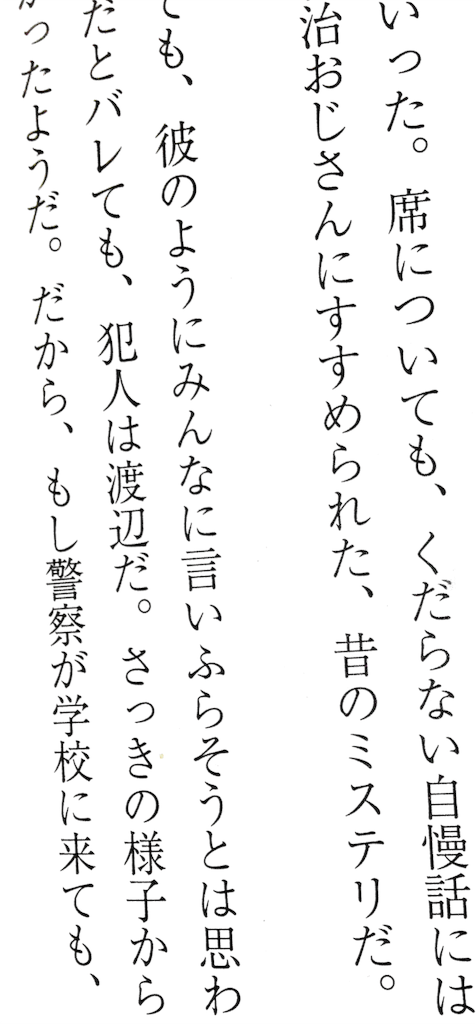 いった。席についても、くだらない自慢話には
治おじさんにすすめられた、昔のミステリだ。
ても、彼のようにみんなに言いふらそうとは思わ
だとバレても、犯人は渡辺だ。さっきの様子から
かったようだ。だから、もし警察が学校に来ても、